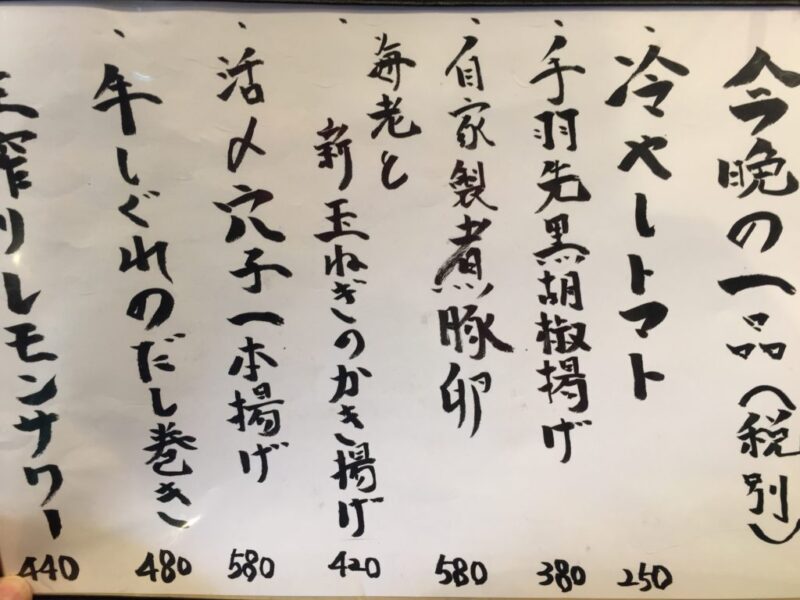 今晩の一品(税別)
、冷やしトマト 250
、手羽先黒胡椒揚げ 380
、自家製煮豚卵 580
、海老と
新玉ねぎのかき揚げ 420
、活〆穴子一本揚げ 580
、牛しぐれのだし巻き 480
生搾りレモンサワー 440